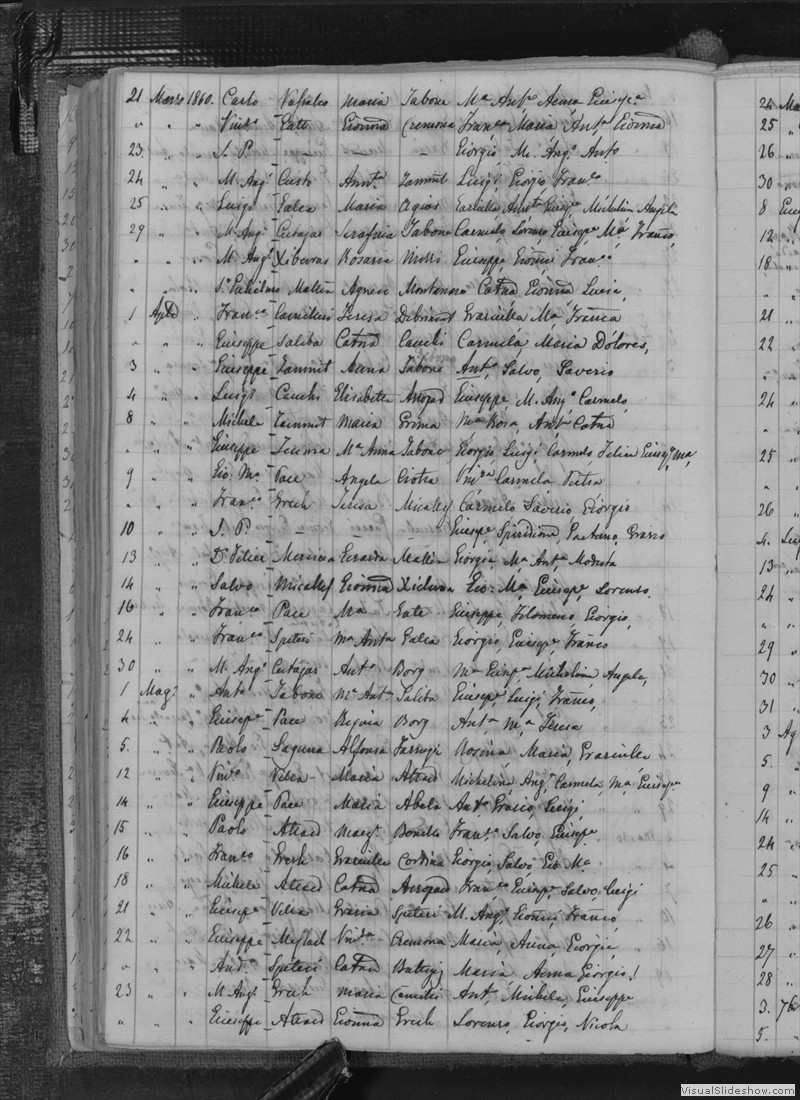 21 Marzo 1860. Carlo Maria Tabone Ma Anta Anna Giusepa
" " " Vinzo Gatt Giomnd Cremona Franca Maria Anta Giomnd
23 " " S. P. — — — Giorgio M. Ango Anto
24 " " M. Ango Custo Anta Zammit Luigi Giorgio Franco
25 " " Luigi Galea Maria Agius Anta Giusepe Michelina Angela
29 " " M. Ango Cutajar Serafina Tabone Carmelo, Lorenzo Giusepe Ma Franco,
" " " M. Ango Xiberras Rosaria Giuseppe Gionni Franco
" " " Sr Gulielmo Mallia Agnese Montanaro Catnd Gionnd Luisa,
1 Aple " Franco Camilleri Teresa Graziella Ma Franca
" " " Giuseppe Saliba Catnd Cauchi Carmela, Maria Dolores,
3 " " Giuseppe Zammit Anna Tabone Anto, Salvo, Saverio
4 " " Luigi Cauchi Elisabetta Giuseppe, M. Ango Carmelo,
8 " " Michele Zammit Maria Grima Ma Rosa, Anta Catnd
" " " Giuseppe Teuma Ma Anna Tabone Giorgio Luigi Carmelo Felice Giusepe Ma,
9 " " Gio: Ma Pace Angela Vinza Carmela Pietra
" " " Franco Grech Teresa Micallef Carmelo Saverio Giorgio
10 " " S. P. — — — Giusepe Spiridione, Gaetano, Grazio
13 " " Dr Felice Mallia Giorgia Ma Anta Modesta
14 " " Salvo Micallef Gionnd Xicluna Gio: Ma Giusepe Lorenzo.
16 " " Franco Pace Ma Gatt Giuseppe, Filomeno, Giorgio,
24 " " Franco Spiteri Ma Anta Galea Giorgio, Giusepe, Franco
30 " " M. Ango Cutajar Anta Borg Ma Giusepa Michelina Angela,
1 Mago " Anto Tabone Ma Anta Saliba Giusepe, Luigi, Franco,
4 " " Giusepe Pace Regina Borg Anta Ma Teresa
5. " " Paolo Laguna Alfonsa Farrugi Rosina Maria, Graziella
12 " " Vinzo Vella Maria Attard Michelina, Anga Carmela, Ma Giusepa
14 " " Giuseppe Pace Maria Abela Anto Grazio, Luigi,
15 " " Paolo Attard Margta Bonello Franco Salvo, Giusepe
16 " " Franco Grech Graziella Cordina Giorgio, Salvo, Gio: Ma
18 " " Michele Attard Catnd Franco Giusepe, Salvo, Luigi
21 " " Giusepe Vella Grazia Spiteri M. Ango, Gionni, Franco,
22 " " Giuseppe Mifsud Vinza Cremona Maria, Anna, Giorgia
" " " Anda Spiteri Catnd Buttigi Maria Anna Giorgio!
23 " " M. Ango Grech Maria Camilli Anto Michele, Giuseppe
" " " Giuseppe Attard Gionna Grech Lorenzo, Giorgio, Nicola
24 Ma
25 "
26 "
30 "
8 Giug
12 "
18 "
" "
21 "
22 "
" "
24 "
" "
25 "
" "
26 "
4. Lug
13 "
24 "
" "
29 "
30 "
31 "
3 Ag
5. "
9 "
14 "
24 "
25 "
" "
26 "
27 "
28 "
3. 7b
5. "
VisualSlideshow.com